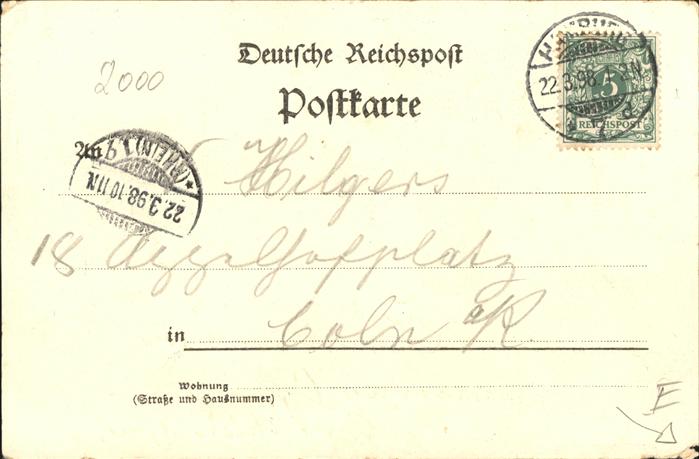 Deutsche Reichspost
Postkarte
2000
5
REICHSPOST
22.3.98
An
(RHEIN) 1
22.3.98.10 11 N.
Hilgers
18 Appelhofplatz
in Coln a/R
Wohnung
(Straße und Hausnummer)
E